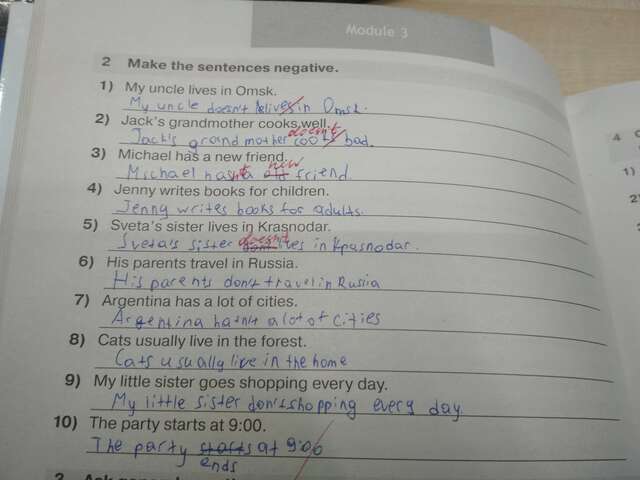 Module 3
2 Make the sentences negative.
1) My uncle lives in Omsk.
My uncle doesn't lives in Omsk.
2) Jack's grandmother cooks well.
doesn't
Jack's grandmother cooks bad.
3) Michael has a new friend.
new
Michael hasn't a friend.
4) Jenny writes books for children.
Jenny writes books for adults.
5) Sveta's sister lives in Krasnodar.
doesn't
Sveta's sister lives in Kрasnodar.
6) His parents travel in Russia.
His parents don't travel in Rusiia
7) Argentina has a lot of cities.
Argentina hatn't a lot of cities
8) Cats usually live in the forest.
Cats usually live in the home
9) My little sister goes shopping every day.
My little sister don't shopping every day.
10) The party starts at 9:00.
The party starts at 9:00
ends
4
1)
2)